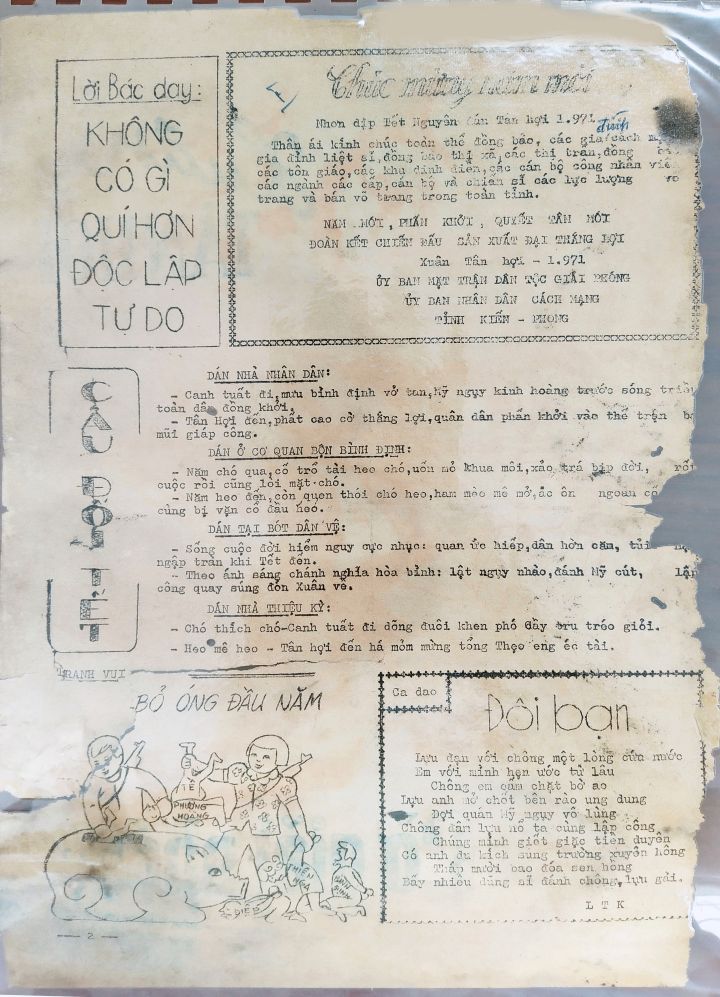 Lời Bác dạy:
KHÔNG
CÓ GÌ
QUÍ HƠN
ĐỘC LẬP
TỰ DO
Chúc mừng năm mới
Nhơn dịp Tết Nguyên đán Tân hợi 1.971
Thân ái kính chúc toàn thể đồng bào, các gia đình cách
gia đình liệt sĩ, đồng bào thị xã, các thị trấn, đồng
các tôn giáo, các khu dinh điền, các cán bộ công nhân viên
các ngành các cấp, cán bộ và chiến sĩ các lực lượng võ
trang và bán võ trang trong toàn tỉnh.
NĂM MỚI, PHẤN KHỞI, QUYẾT TÂM MỚI
ĐOÀN KẾT CHIẾN ĐẤU SẢN XUẤT ĐẠI THẮNG LỢI
Xuân Tân hợi - 1.971
ỦY BAN MẶT TRẬN DÂN TỘC GIẢI PHÓNG
ỦY BAN NHÂN DÂN CÁCH MẠNG
TỈNH KIẾN - PHONG
CÂU ĐỐI TẾT
DÁN NHÀ NHÂN DÂN:
- Canh tuất đi, mưu bình định vở tan, Mỹ ngụy kinh hoàng trước sóng triều
toàn dân đồng khởi,
- Tân Hợi đến, phất cao cờ thắng lợi, quân dân phấn khởi vào thế trận
mũi giáp công.
DÁN Ở CƠ QUAN BỌN BÌNH ĐỊNH:
- Năm chó qua, cố trổ tài heo chó, uốn mỏ khua môi, xảo trá bịp đời,
cuộc rồi cũng lòi mặt chó.
- Năm heo đến, còn quen thói chó heo, ham mèo mê mỡ, ác ôn ngoan cố
cũng bị vặn cổ đầu heo.
DÁN TẠI BÓT DÂN VỆ:
- Sống cuộc đời hiểm nguy cực nhục: quan ức hiếp, dân hờn căm, tủi
ngập tràn khi Tết đến.
- Theo ánh sáng chánh nghĩa hòa bình: lật ngụy nhào, đánh Mỹ cút, lập
công quay súng đón Xuân về.
DÁN NHÀ THIỆU KỲ:
- Chó thích chó-Canh tuất đi dõng đuôi khen phó đầy tru tréo giỏi.
- Heo mê heo - Tân hợi đến há mỏm mừng tổng Thẹo eng éc tài.
TRANH VUI
BỎ ỐNG ĐẦU NĂM
TỀ
PHƯỢNG
HOÀNG
THIÊN
NGA
BÌNH
ĐỊNH
ĐIỆP
Ca dao
Đôi bạn
Lựu đạn với chông một lòng cứu nước
Em với mình hẹn ước từ lâu
Chông em cắm chặt bờ ao
Lựu anh mở chốt bên rào ung dung
Đợi quân Mỹ ngụy vô lùng
Chông đâm lựu nổ ta cùng lập công
Chúng mình giết giặc tiền duyên
Có anh du kích súng trường xuyên hông
Tháp mười bao đóa sen hồng
Bấy nhiêu dũng sĩ đánh chông, lựu gài.
L T K
- 2 -